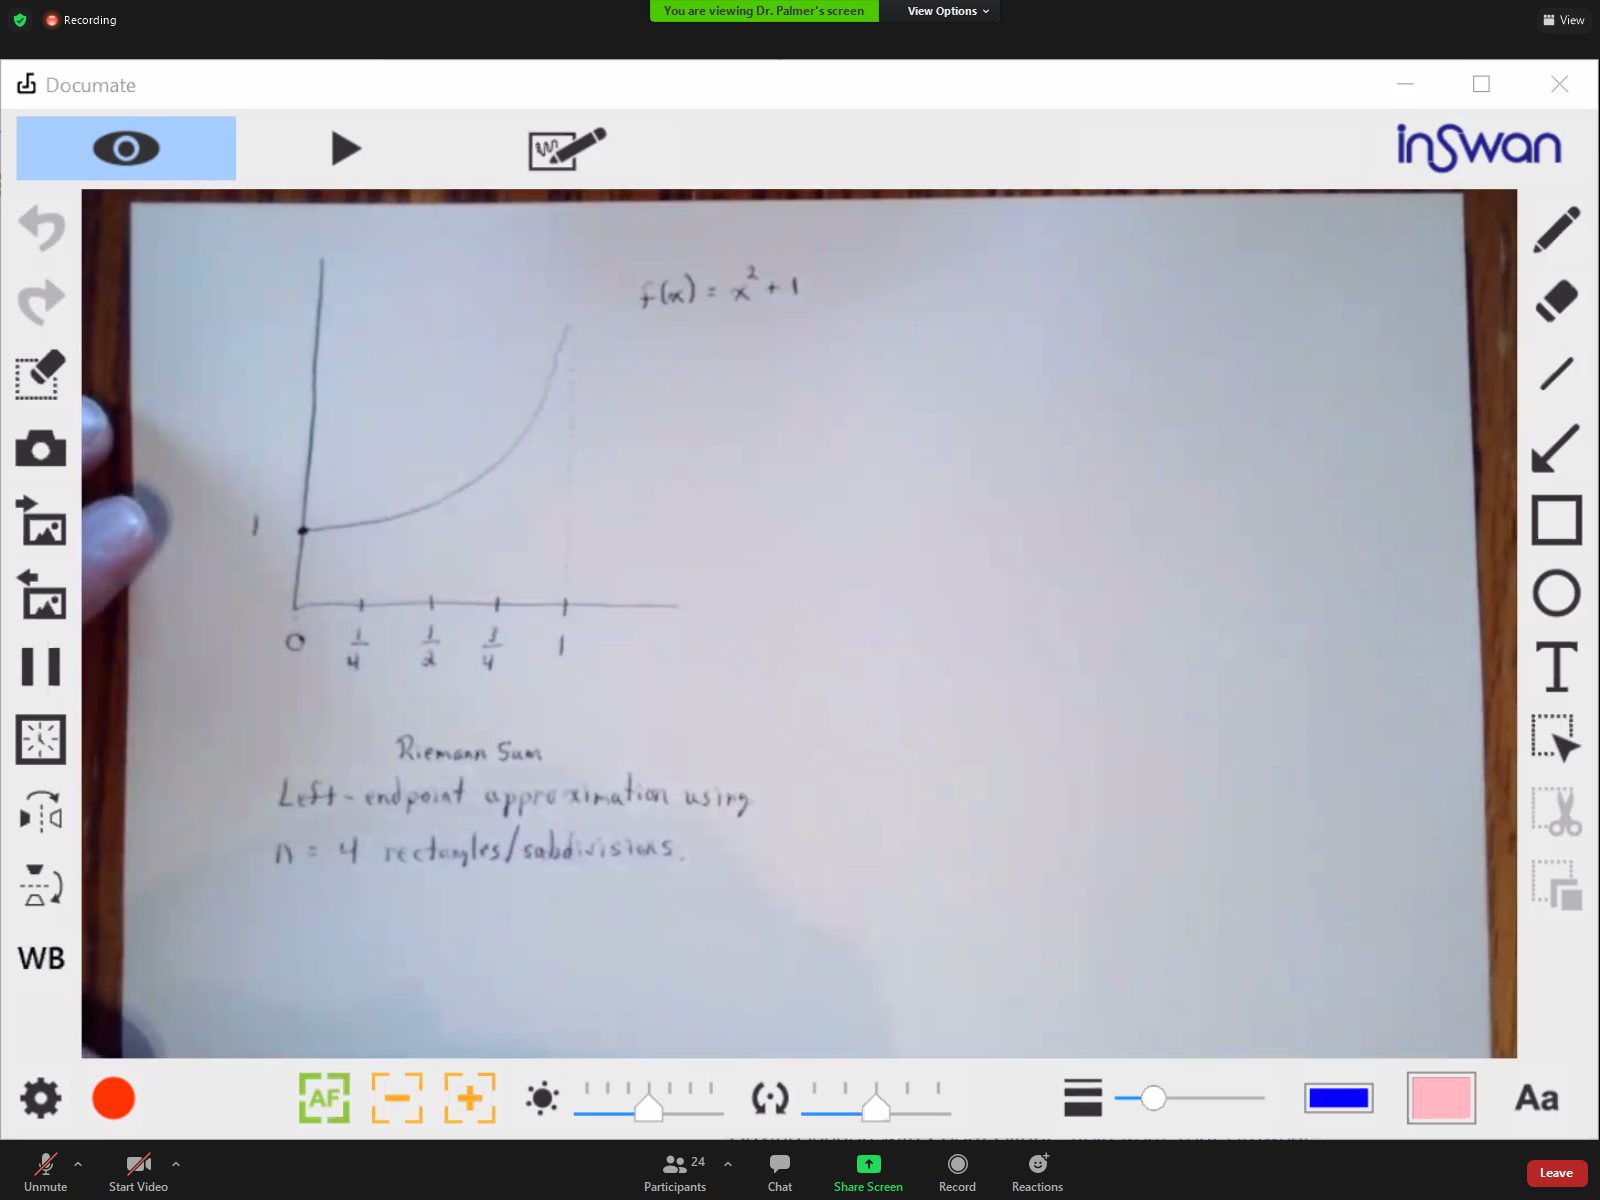 Recording
You are viewing Dr. Palmer's screen
View Options
View
Documate
inSwan
f(x) = x² + 1
1
0 1/4 1/2 3/4 1
Riemann Sum
Left-endpoint approximation using
n = 4 rectangles/subdivisions.
WB
AF
T
Aa
Unmute
Start Video
24
Participants
Chat
Share Screen
Record
Reactions
Leave